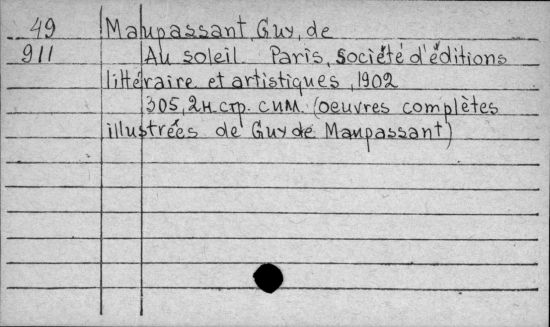 49 Maupassant, Guy, de
911 Au soleil Paris, société d'éditions
littéraire et artistiques, 1902
305, 2н. стр. с илл. (oeuvres complètes
illustrées de Guy de Maupassant)